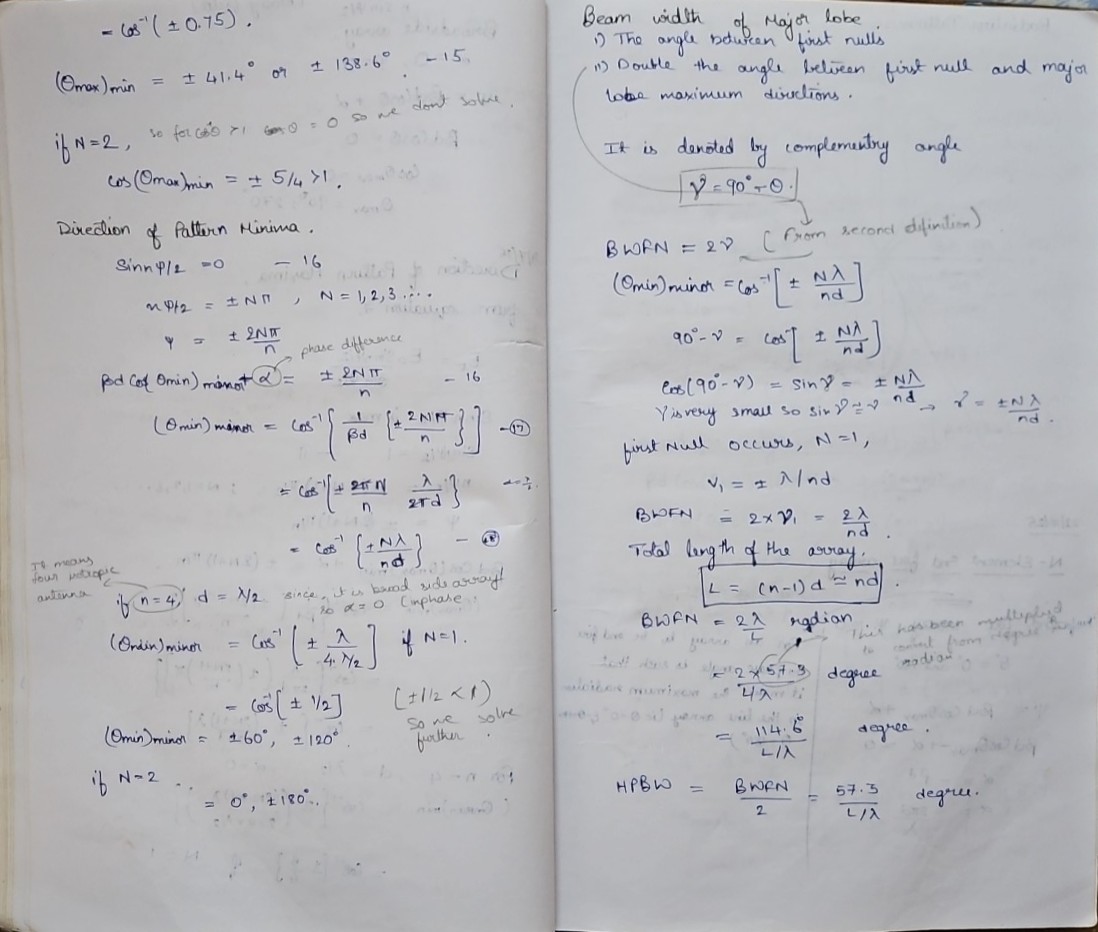 = cos⁻¹ (± 0.75).
(θmax)min = ± 41.4° or ± 138.6°. - 15
if N=2, so for cosθ >1 θ = 0 so we dont solve.
cos(θmax)min = ± 5/4 >1.
Direction of Pattern Minima.
Sin nφ/2 = 0 - 16
nφ/2 = ± Nπ , N = 1, 2, 3 ....
φ = ± 2Nπ/n
phase difference
βd cos(θmin) minor + α = ± 2Nπ/n - 16
(θmin) minor = cos⁻¹ { 1/βd [± 2Nπ/n }] - 17
= cos⁻¹ {± 2πN/n λ/2πd }
= cos⁻¹ {± Nλ/nd } - 18
It means four isotropic antenna
if n=4, d = λ/2 since, it is broad side array so α=0 (inphase.
(θmin) minor = cos⁻¹ ( ± λ/4.λ/2 ] if N=1.
= cos⁻¹ [ ± 1/2] (±1/2 < 1) So we solve further.
(θmin) minor = ±60°, ±120°.
if N=2
= 0°, ±180°.
Beam width of Major lobe.
i) The angle between first nulls
ii) Double the angle between first null and major
lobe maximum directions.
It is denoted by complementry angle
γ = 90° - θ.
BWFN = 2γ (From second difinition)
(θmin) minor = cos⁻¹ [ ± Nλ/nd ]
90° - γ = cos⁻¹ [ ± Nλ/nd ]
Cos(90° - γ) = sin γ = ± Nλ/nd
γ is very small so sin γ ≅ γ → γ = ±Nλ/nd.
first Null occurs, N=1,
γ₁ = ± λ/nd
BWFN = 2 x γ₁ = 2λ/nd.
Total length of the array.
L = (n-1) d ≅ nd.
BWFN = 2λ/L radian.
This has been multiplied to convert from radian
= 2 x 57.3/L/λ degree
= 114.6°/L/λ degree.
HPBW = BWFN/2 = 57.3/L/λ degree.